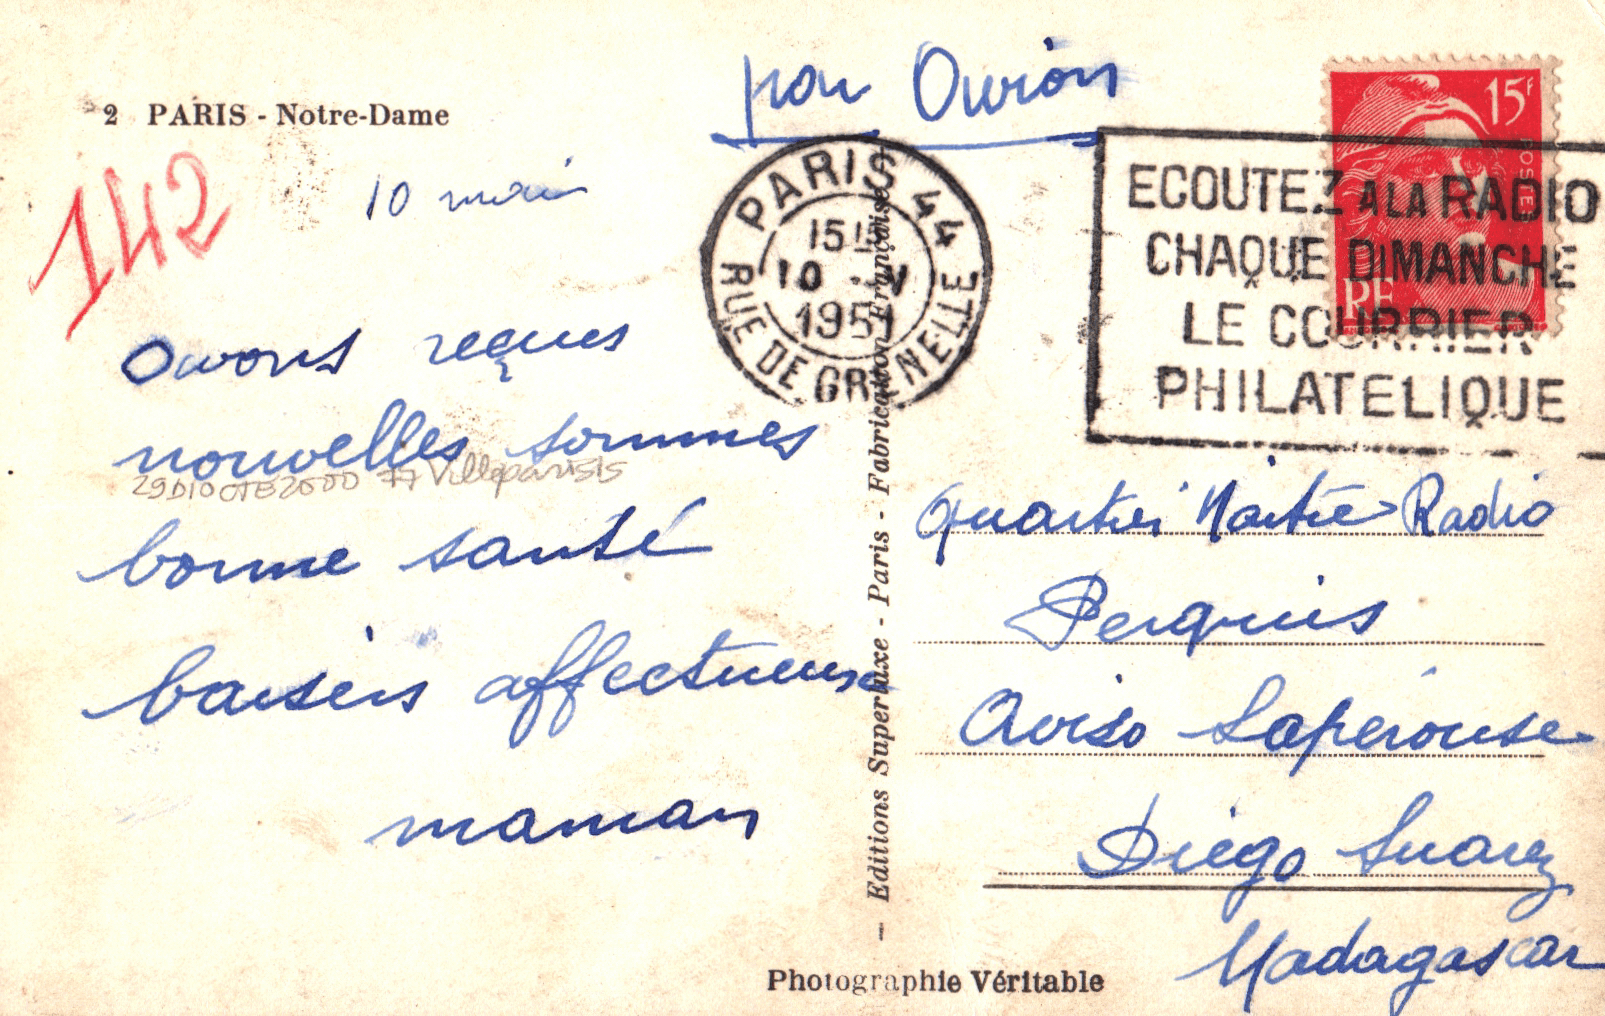 2 PARIS - Notre-Dame
par Avion
142
10 mai
Avons reçues
nouvelles sommes
bonne santé
baisers affectueux
maman
29 DIOCTB2000 77 Villeparisis
PARIS 44
15H
10 - V
1951
RUE DE GRENELLE
15F
RF
ECOUTEZ A LA RADIO
CHAQUE DIMANCHE
LE COURRIER
PHILATELIQUE
— Editions Superluxe - Paris - Fabrication Française
Quartier Maitre Radio
Perquis
Aviso Laperouse
Diego Suarez
Madagascar
Photographie Véritable